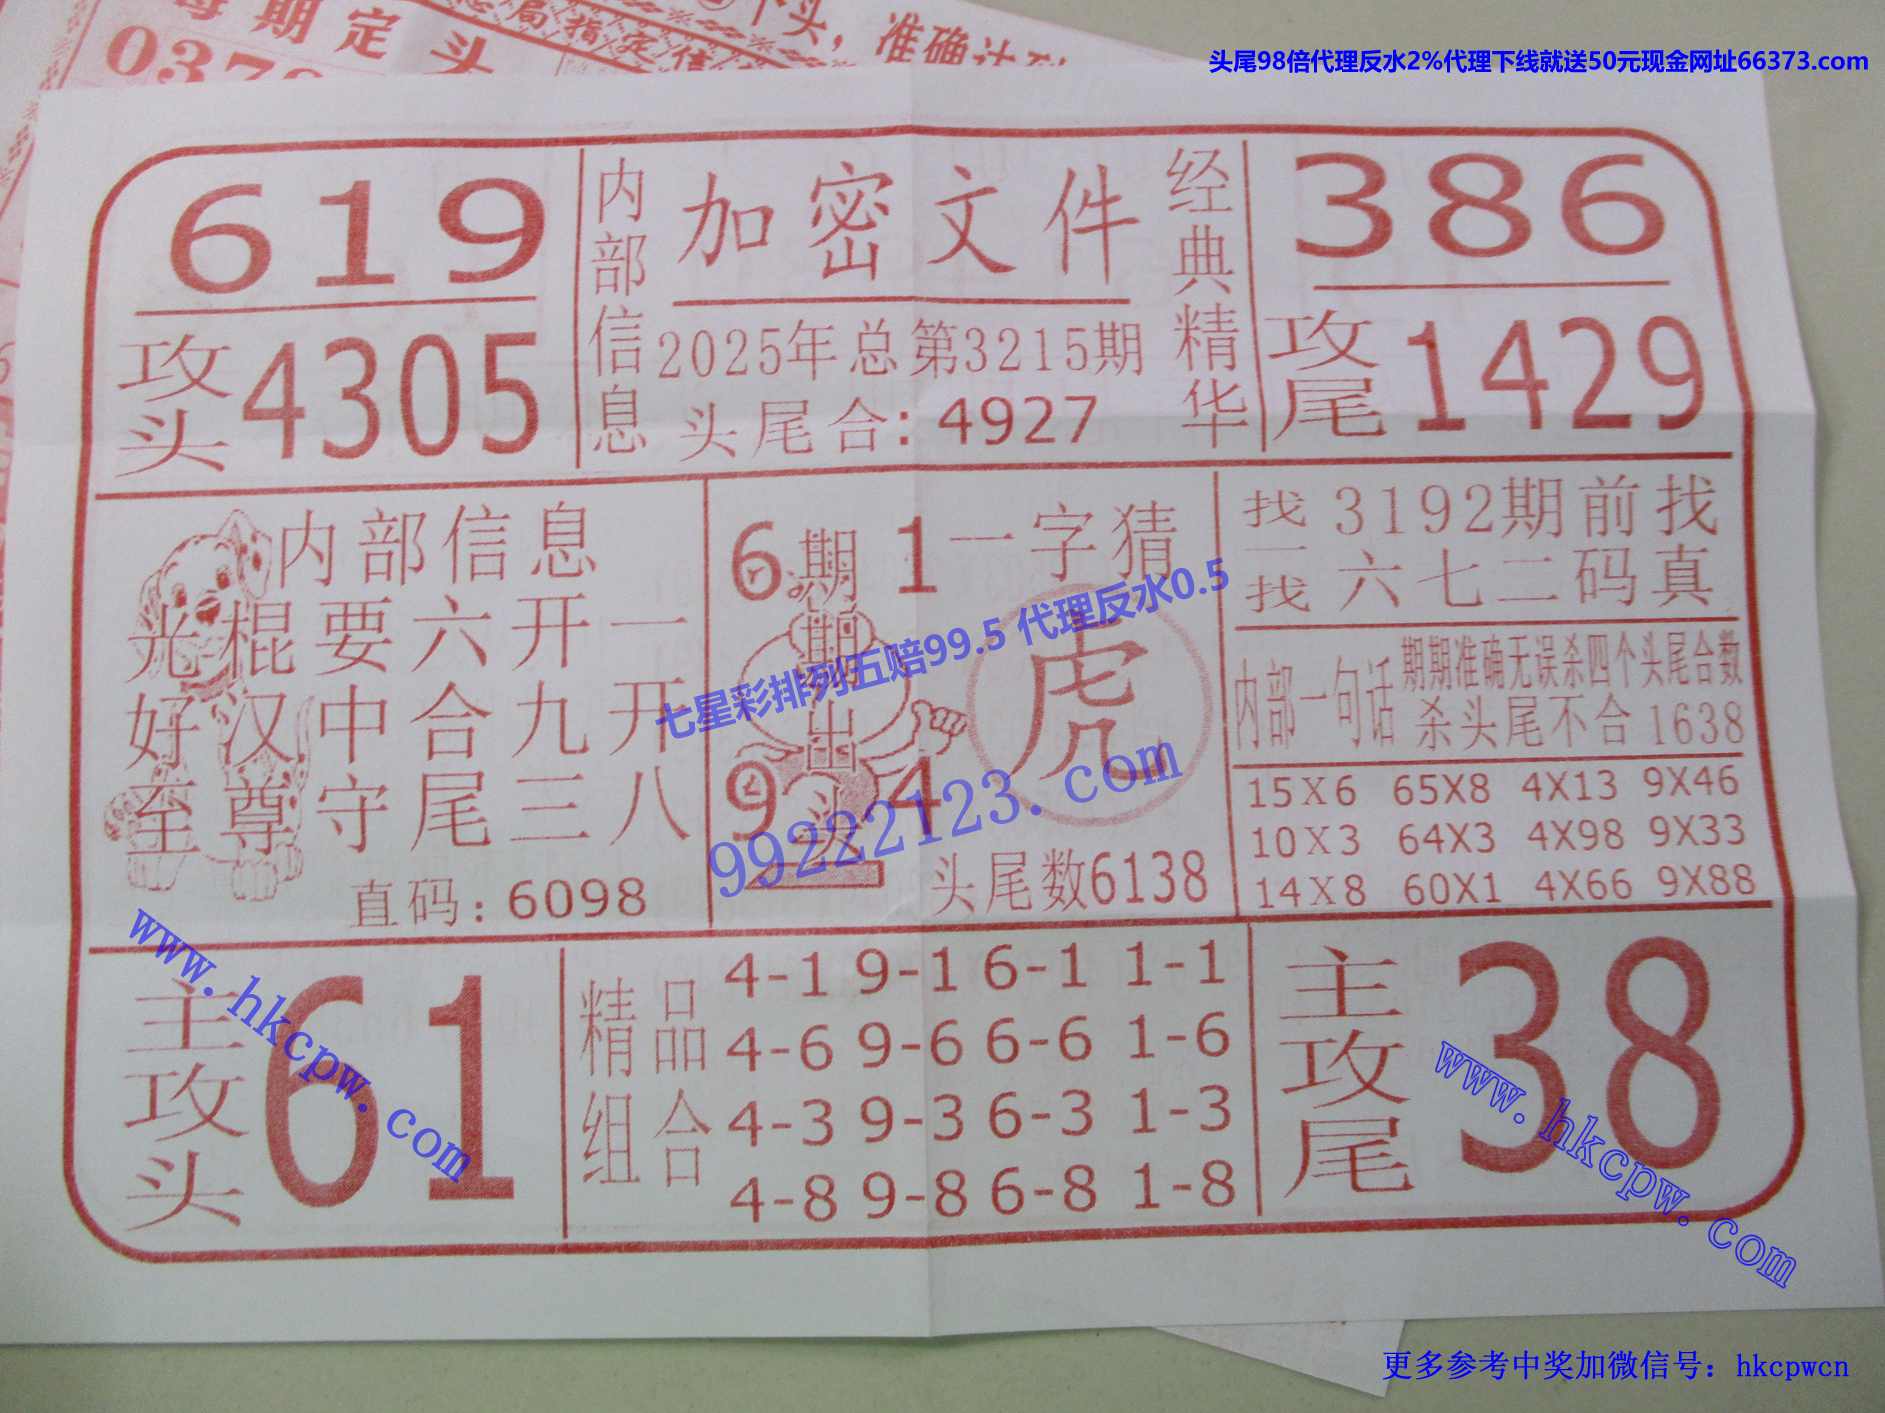 每期定头
局指定信
个头，准确达到
头尾98倍代理反水2%代理下线就送50元现金网址66373.com
619
攻头4305
内部信息
加密文件
2025年总第3215期
头尾合：4927
经典精华
386
攻尾1429
内部信息
光棍要六开一
好汉中合九开
至尊守尾三八
直码：6098
6 1
9 4
期期出头
2
一字猜
虎
头尾数6138
找一找
3192期前找
六七二码真
内部一句话
期期准确无误杀四个头尾合数
杀头尾不合1638
15X6 65X8 4X13 9X46
10X3 64X3 4X98 9X33
14X8 60X1 4X66 9X88
七星彩排列五赔99.5 代理反水0.5
99222123.com
主攻头
61
精品组合
4-1 9-1 6-1 1-1
4-6 9-6 6-6 1-6
4-3 9-3 6-3 1-3
4-8 9-8 6-8 1-8
主攻尾
38
www.hkcpw.com
www.hkcpw.com
更多参考中奖加微信号：hkcpwcn